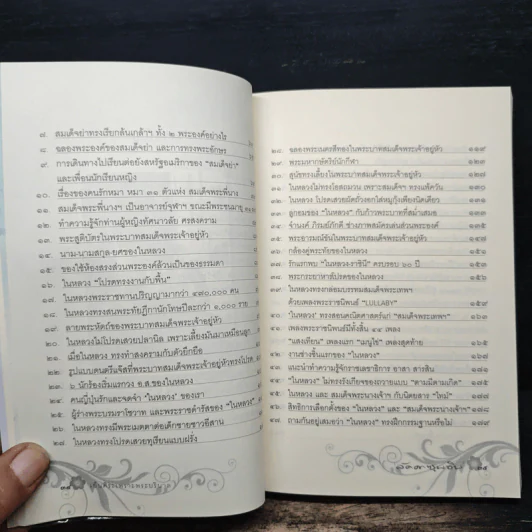 ๗. สมเด็จย่าทรงเรียกล้นเกล้าฯ ทั้ง ๒ พระองค์อย่างไร
๘. ฉลองพระองค์ของสมเด็จย่า และการทรงพระอักษร
๙. การเดินทางไปเรียนต่อยังสหรัฐอเมริกาของ "สมเด็จย่า"
และเพื่อนนักเรียนหญิง
๑๐. เรื่องของคนรักหมา หมา ๓๑ ตัวแห่ง สมเด็จพระพี่นาง
๑๑. สมเด็จพระพี่นางฯ เป็นอาจารย์จุฬาฯ ขณะมีพระชนมายุ
๑๒. ทำความรู้จักท่านผู้หญิงทัศนาวลัย ศรสงคราม
๑๓. พระสูติบัตรในพระบาทสมเด็จพระเจ้าอยู่หัว
๑๔. นาม-นามสกุล-ยศของในหลวง
๑๕. ของใช้ห้องสรงส่วนพระองค์ล้วนเป็นของธรรมดา
๑๖. ในหลวง "โปรดทรงงานกับพื้น"
๑๗. ในหลวงพระราชทานปริญญามากว่า ๔๘๐,๐๐๐ คน
๑๘. ในหลวงทรงสนพระทัยฎีกานักโทษปีละกว่า ๑,๐๐๐ ราย
๑๙. ลายพระหัตถ์ของพระบาทสมเด็จพระเจ้าอยู่หัว
๒๐. ในหลวงไม่โปรดเสวยปลานิล เพราะเลี้ยงมันมาเหมือนลูก
๒๑. เมื่อในหลวง ทรงทำสงครามกับตัวยึกยือ
๒๒. รูปแบบดนตรีแจ๊สที่พระบาทสมเด็จพระเจ้าอยู่หัวทรงโปรด
๒๓. นักร้องเริ่มแรกวง อ.ส ของในหลวง
๒๔. คนญี่ปุ่นรักและจดจำ "ในหลวง" ของเรา
๒๕. ผู้ร่างพระบรมราโชวาท และพระราชดำรัสของ "ในหลวง"
๒๖. ในหลวงทรงมีพระเมตตาต่อเด็กชายชาวอีสาน
๒๗. ในหลวงทรงโปรดเสวยทุเรียนแบบฝรั่ง
๒๘. ฉลองพระเนตรสีทองในพระบาทสมเด็จพระเจ้าอยู่หัว ๑๑๙
๒๙. พระมหากษัตริย์นักกีฬา
๓๐. สุนัขทรงเลี้ยงในพระบาทสมเด็จพระเจ้าอยู่หัว
๓๑. ในหลวงไม่ทรงโยสถมวน เพราะสมเด็จฯ ทรงแพ้ควัน
๓๒. ในหลวง โปรดเสวยผัดถั่วงอกใส่หมูกุ้งเพียงนิดเดียว
๓๓. ลูกอมของ "ในหลวง" กับก้าวพระบาทที่สม่ำเสมอ
๓๔. จำนงค์ ภิรมย์ภักดี ช่างภาพสมัครเล่นส่วนพระองค์
๓๕. พระอารมณ์ขันในพระบาทสมเด็จพระเจ้าอยู่หัว
๓๖. กล้องคู่พระทัยของในหลวง
๓๗. รักแรกพบ "ในหลวง-ราชินี" ครบรอบ ๖๐ ปี
๓๘. พระกระยาหารโปรดของในหลวง
๓๙. ในหลวงทรงกล่อมบรรทมสมเด็จพระเทพฯ
ด้วยเพลงพระราชนิพนธ์ "LULLABY"
๔๐. "ในหลวง" ทรงสอนคณิตศาสตร์แก่ "สมเด็จพระเทพฯ"
๔๑. เพลงพระราชนิพนธ์มีทั้งสิ้น ๔๘ เพลง
"แสงเทียน" เพลงแรก "เมนูไข่" เพลงสุดท้าย
๔๒. งานช่างชิ้นแรกของ "ในหลวง"
๔๓. แนะนำทำความรู้จักราชเลขาธิการ อาสา สารสิน
๔๔. "ในหลวง" ไม่ทรงรังเกียจของถวายแบบ "ตามมีตามเกิด"
๔๕. ในหลวง และ สมเด็จพระนางเจ้าฯ กับนิตยสาร "ไทม์"
๔๖. สิทธิการเลือกตั้งของ "ในหลวง" และ "สมเด็จพระนางเจ้าฯ"
๔๗. ถามกันอยู่เสมอว่า "ในหลวง" ทรงฝึกกรรมฐานหรือไม่